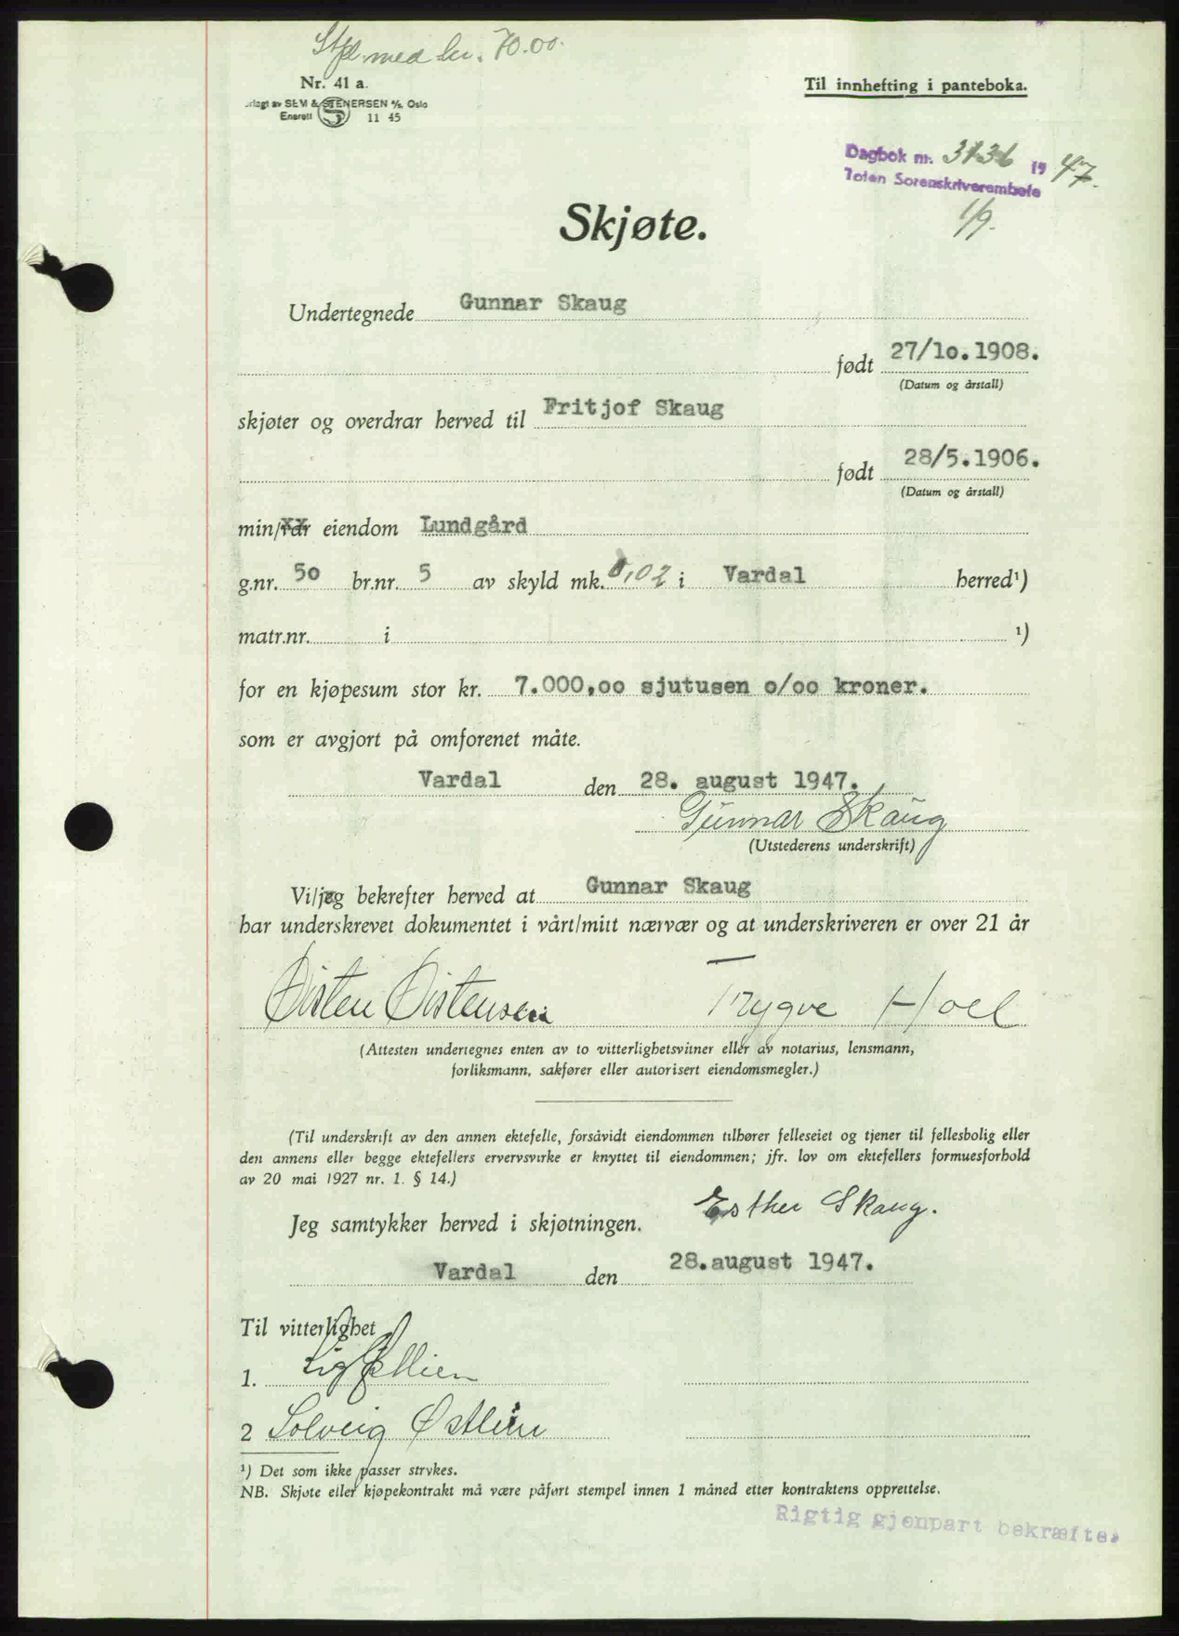 Stpl. med kr. 70.00.
Nr. 41 a.
SEM & STENERSEN A/S, Oslo
Enerett 11 45
Til innhefting i panteboka.
Dagbok nr. 3136 1947.
Toten Sorenskriverembete
1/9.
Skjøte.
Undertegnede Gunnar Skaug
født 27/10.1908.
(Datum og årstall)
skjøter og overdrar herved til Fritjof Skaug
født 28/5.1906.
(Datum og årstall)
min/vår eiendom Lundgård
g.nr. 50 br.nr. 5 av skyld mk. 0,02 i Vardal herred¹)
matr.nr. i ¹)
for en kjøpesum stor kr. 7.000,oo sjutusen o/oo kroner.
som er avgjort på omforenet måte.
Vardal den 28. august 1947.
Gunnar Skaug
(Utstederens underskrift)
Vi/jeg bekrefter herved at Gunnar Skaug
har underskrevet dokumentet i vårt/mitt nærvær og at underskriveren er over 21 år
Øisten Øistensen Trygve Hoel
(Attesten undertegnes enten av to vitterlighetsvitner eller av notarius, lensmann,
forliksmann, sakfører eller autorisert eiendomsmegler.)
(Til underskrift av den annen ektefelle, forsåvidt eiendommen tilhører felleseiet og tjener til fellesbolig eller
den annens eller begge ektefellers ervervsvirke er knyttet til eiendommen; jfr. lov om ektefellers formuesforhold
av 20 mai 1927 nr. 1. § 14.)
Esther Skaug.
Jeg samtykker herved i skjøtningen.
Vardal den 28.august 1947.
Til vitterlighet
1.
2 Solveig Østlien
¹) Det som ikke passer strykes.
NB. Skjøte eller kjøpekontrakt må være påført stempel innen 1 måned etter kontraktens opprettelse.
Rigtig gjenpart bekræftes